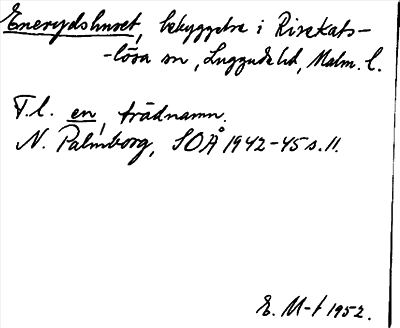 Enerydshuset, bebyggelse i Risekats-
-lösa sn, Luggude hd, Malm. l.
T.l. en, trädnamn.
N. Palmborg, SOÅ 1942-45 s. 11.
E. M-t 1952.